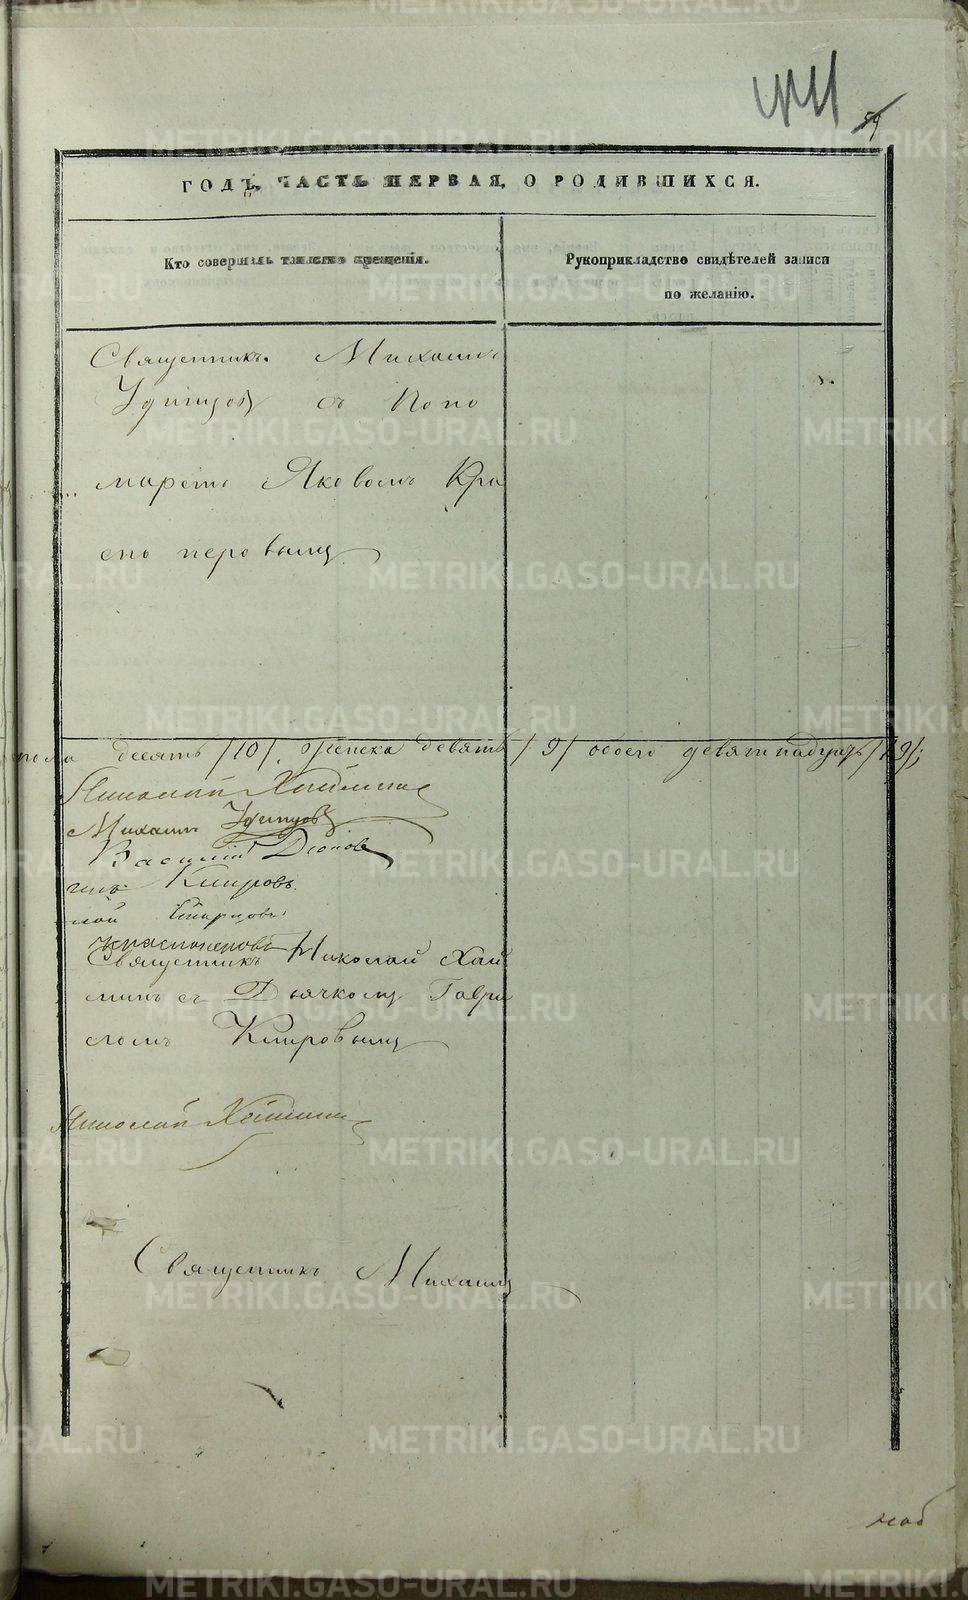 59
ГОДЪ, ЧАСТЬ ПЕРВАЯ, О РОДИВШИХСЯ.
Кто совершалъ таинство крещенія.
Рукоприкладство свидѣтелей записи
по желанію.
Священникъ Михаилъ
Удинцовъ съ Поно
маремъ Яковомъ Кра
сноперовымъ
пола десять /10/, женска девять /9/ обоего девятнадцать /19/;
Николай Хаймин
Михаилъ Удинцовъ
Василій
Кыировъ
Красноперовъ
Священникъ Николай Хай
минъ съ Дьячкомъ Гаврі
ломъ
Николай Хаймин
Священникъ Михаилъ
METRIKI.GASO-URAL.RU